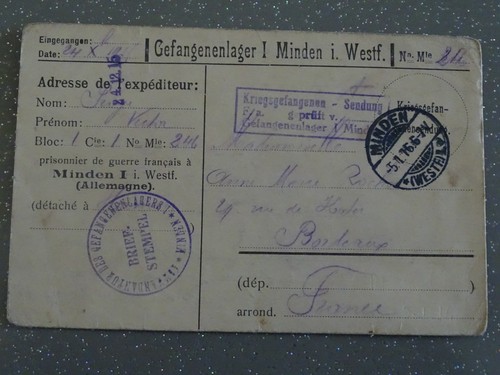 Eingegangen:
Date: 24 X
24.12.15
Gefangenenlager I Minden i. Westf.
No. Mle
Adresse de l'expéditeur:
Nom:
Prénom:
Bloc: 1 Cie: 1 No Mle: 246
prisonnier de guerre français à
Minden I i. Westf.
(Allemagne).
(détaché à
BRIEF-
STEMPEL
Kriegsgefangenen - Sendung
geprüft v.
Gefangenenlager I Minden
Kriegsgefan-
genensendung.
MINDEN
-5.1.16.
*(WESTF.)*
Mademoiselle
Anne Marie
29 rue de
Bordeaux
(dép.
arrond.
France